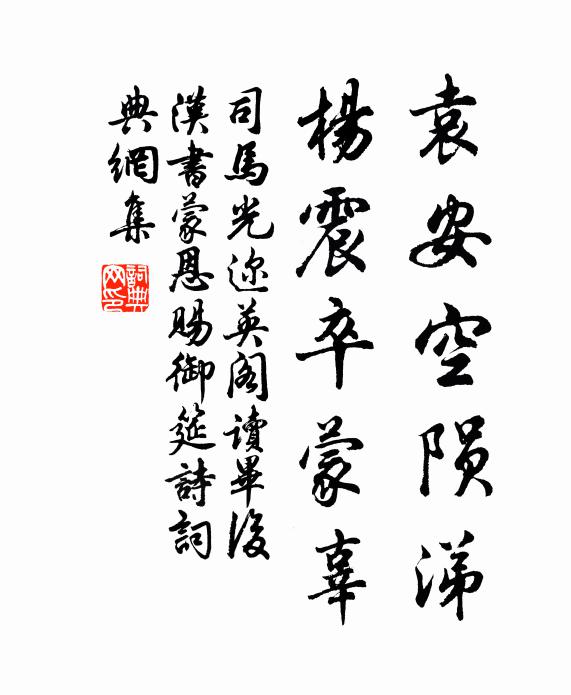 袁安空隕涕
楊震卒蒙辜
司馬光迩英阁讀畢後
漢書蒙恩賜御筵詩詞
典網集
詞典网印